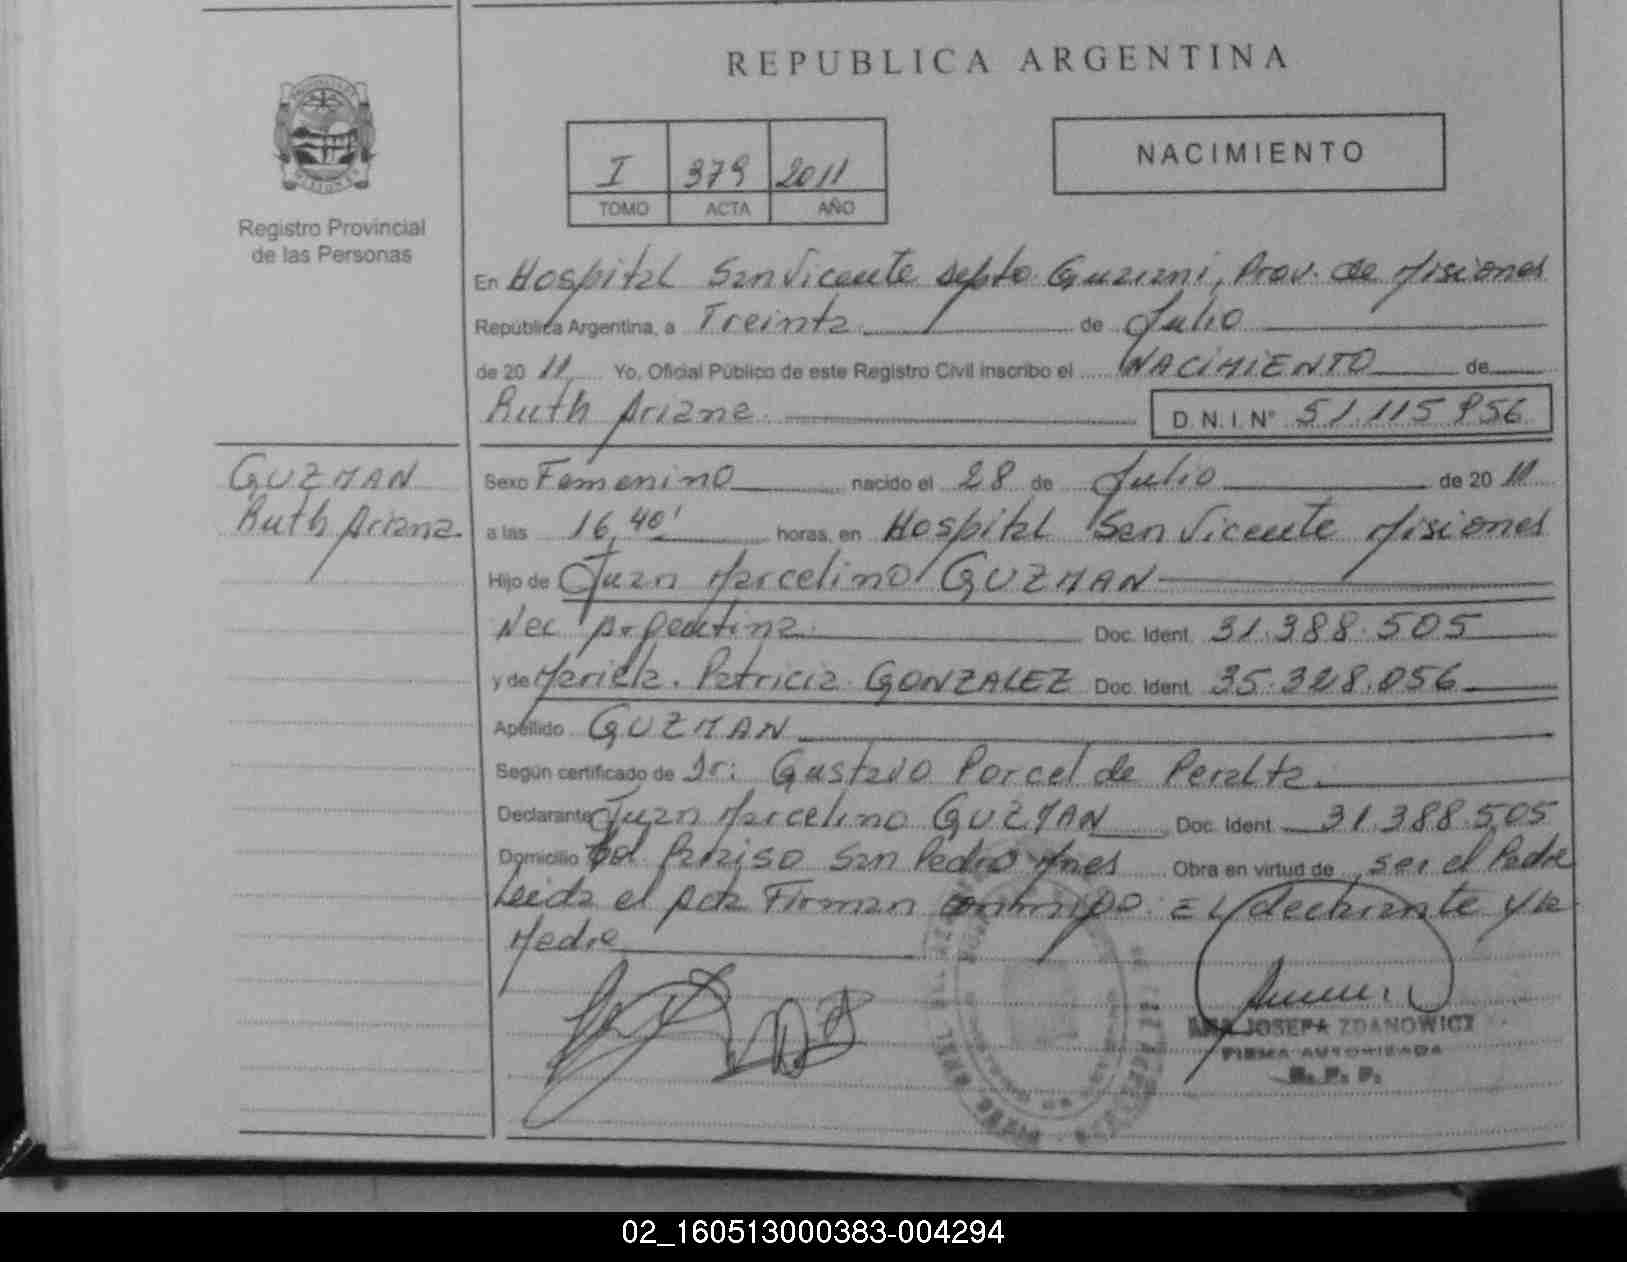 REPUBLICA ARGENTINA
I 379 2011
TOMO ACTA AÑO
NACIMIENTO
Registro Provincial
de las Personas
En Hospital San Vicente depto Guarani, Prov. de Misiones
República Argentina, a Treinta de Julio
de 20 11 Yo, Oficial Público de este Registro Civil inscribo el NACIMIENTO de
Ruth Ariane D.N.I.N° 51.115.956
GUZMAN
Ruth Ariana
Sexo Femenino nacido el 28 de Julio de 20 11
a las 16,40' horas, en Hospital San Vicente Misiones
Hijo de Juan Marcelino GUZMAN
Nac Argentina Doc. Ident. 31.388.505
y de Mariela Patricia GONZALEZ Doc. Ident. 35.328.056
Apellido GUZMAN
Según certificado de Dr: Gustavo Porcel de Peralta
Declarante Juan Marcelino GUZMAN Doc. Ident. 31.388.505
Domicilio Paraiso San Pedro Mnes Obra en virtud de ser el Padre
Leida el Acta Firman conmigo EL declarante y la
Madre
JOSEFA ZDANOWICZ
FIRMA AUTORIZADA
R. P. P.
02_160513000383-004294